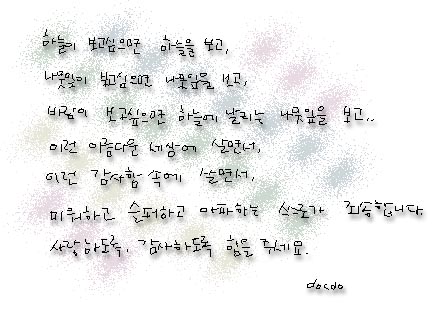 하늘이 보고싶으면 하늘을 보고,
나뭇잎이 보고싶으면 나뭇잎을 보고,
바람이 보고싶으면 하늘에 날리는 나뭇잎을 보고..
이런 아름다운 세상에 살면서,
이런 감사함 속에 살면서,
미워하고 슬퍼하고 아파하는 스스로가 죄송합니다
사랑하도록, 감사하도록 힘을 주세요.
docdo